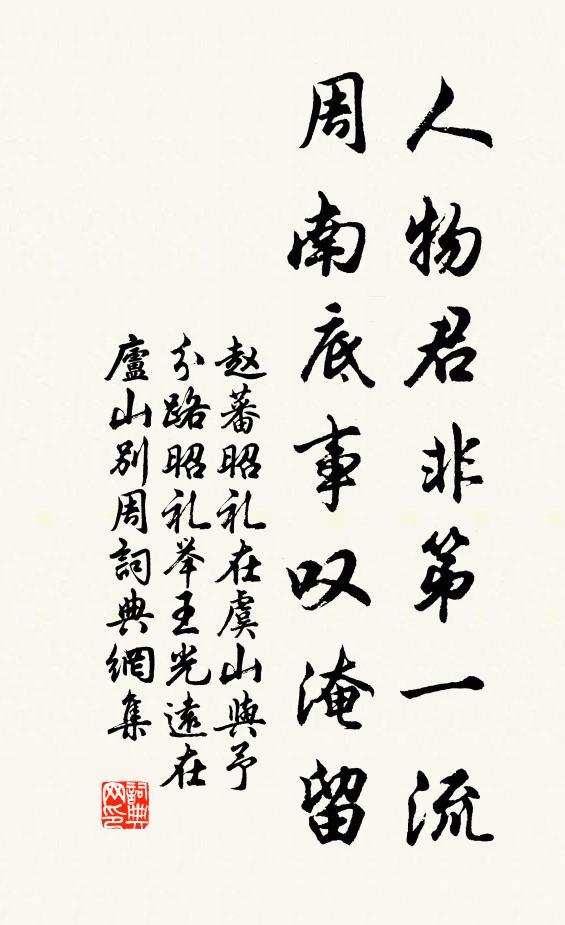 人物君非第一流
周南底事叹淹留
赵蕃昭礼在虞山與予
分路昭礼举王光遠在
廬山别周詞典網集
詞典网印